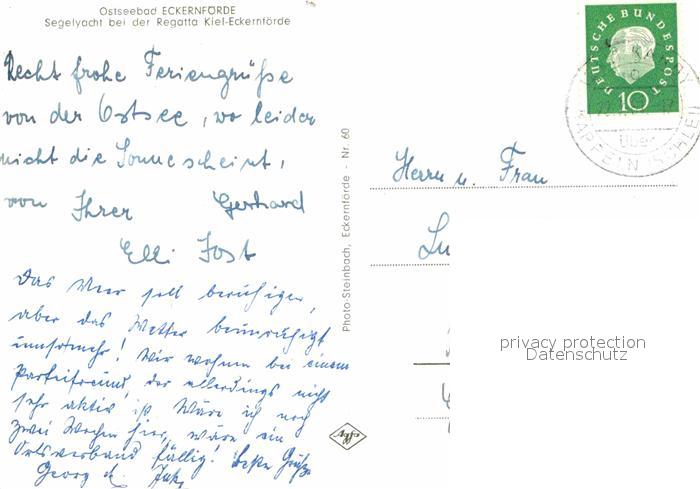 Ostseebad ECKERNFÖRDE
Segelyacht bei der Regatta Kiel-Eckernförde
Recht frohe Feriengrüße
von der Ostsee, wo leider
nicht die Sonne scheint,
von Ihrer Gerhard
Elli Jost
Das Meer soll beruhigen,
aber das Wetter beunruhigt
immermehr! Wir wohnen bei einem
Parteifreund, der allerdings nicht
sehr aktiv ist. Wäre ich noch
zwei Wochen hier, wäre ein
Ortsverband fällig! Beste Grüße
Georg
Photo-Steinbach, Eckernförde - Nr. 60
Agfa
DEUTSCHE BUNDESPOST
10
über
KAPPELN (SCHLEI)
Herrn u. Frau
Lu
privacy protection
Datenschutz